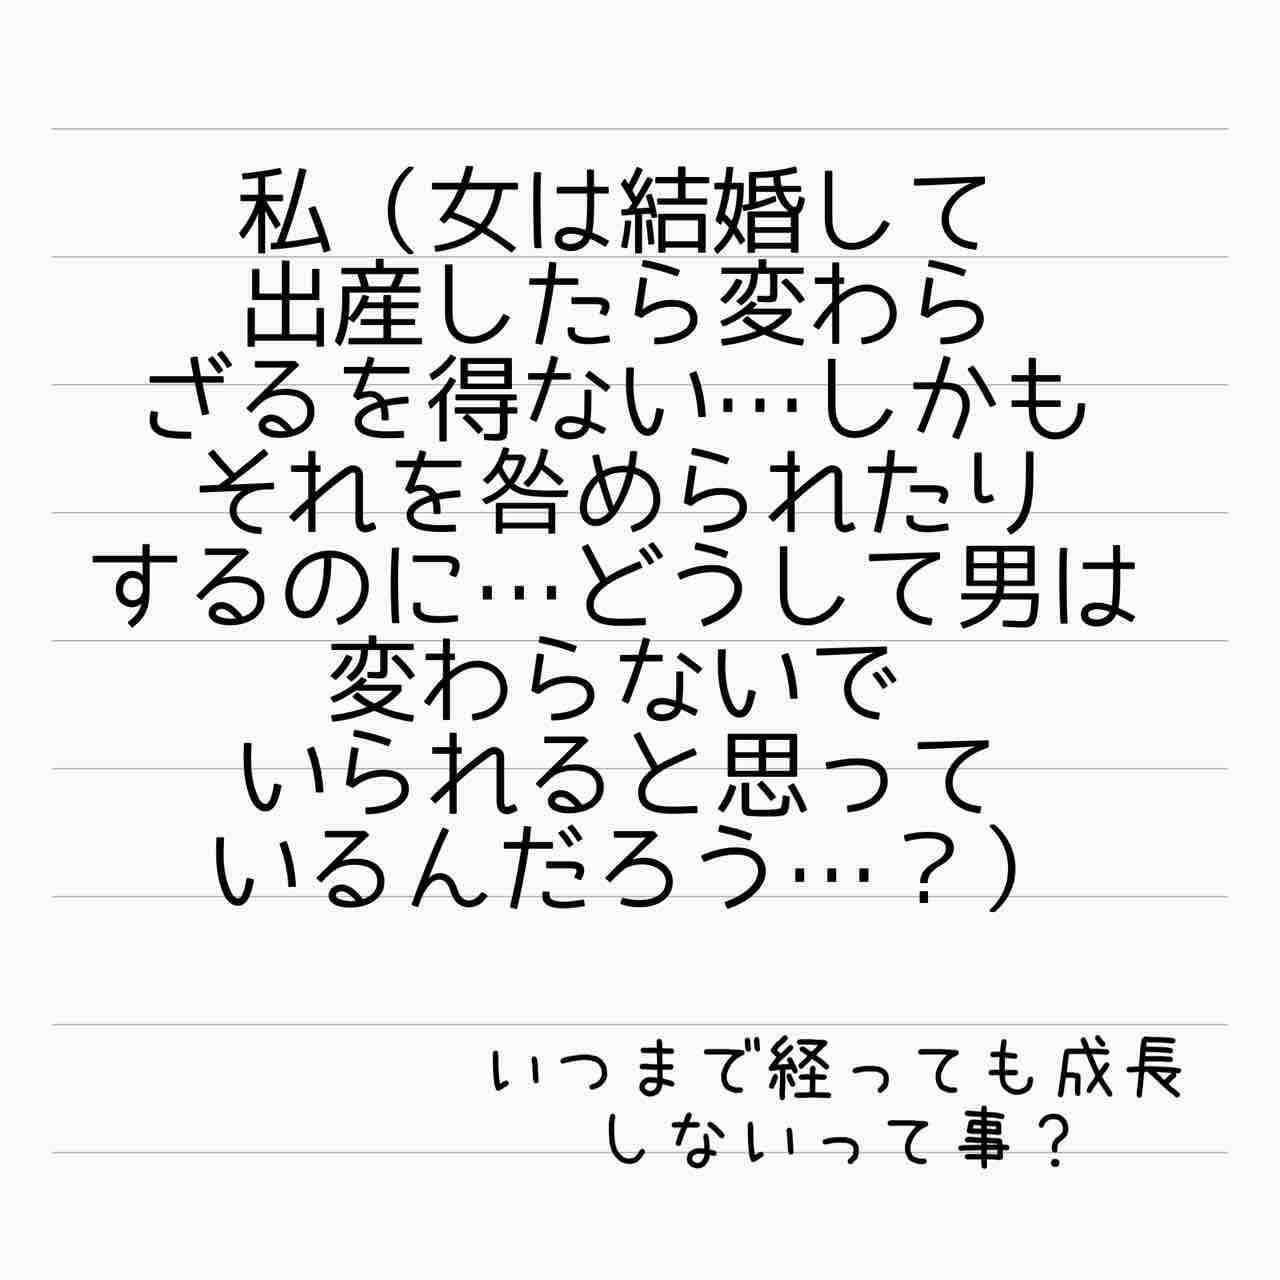 私（女は結婚して
出産したら変わら
ざるを得ない…しかも
それを咎められたり
するのに…どうして男は
変わらないで
いられると思って
いるんだろう…？）
いつまで経っても成長
しないって事？